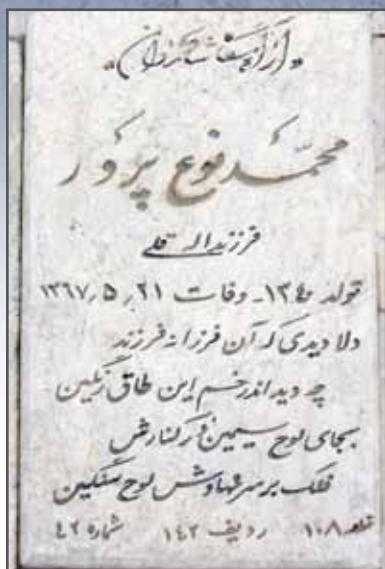 محمد نوع پرور
فرزند الله قلی
تولد ۱۳۴۰ - وفات ۲۱ ر ۵ ر ۱۳۶۷
دلا دیدی که آن فرزانه فرزند
چه دید اندر خم این طاق رنگین
بجای لوح سیمین در کنارش
فلک بر سر نهادش لوح سنگین
قطعه ۱۰۸ ردیف ۱۴۲ شماره ۴۲